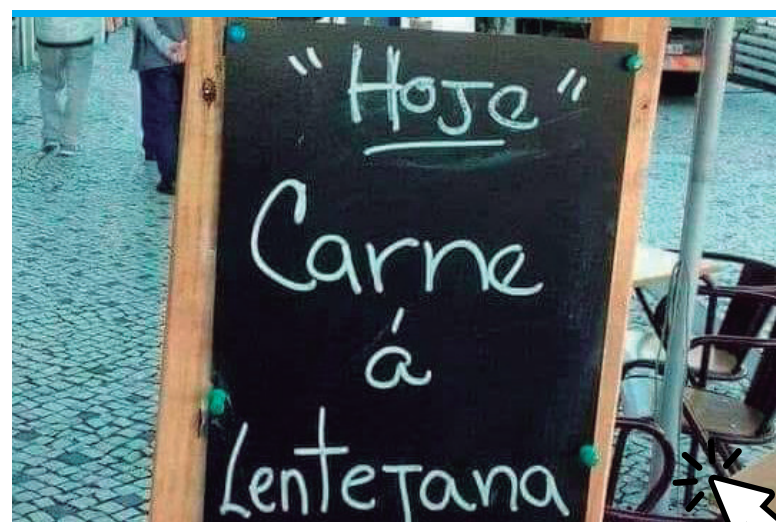 "Hoje"
Carne
á
Lentejana